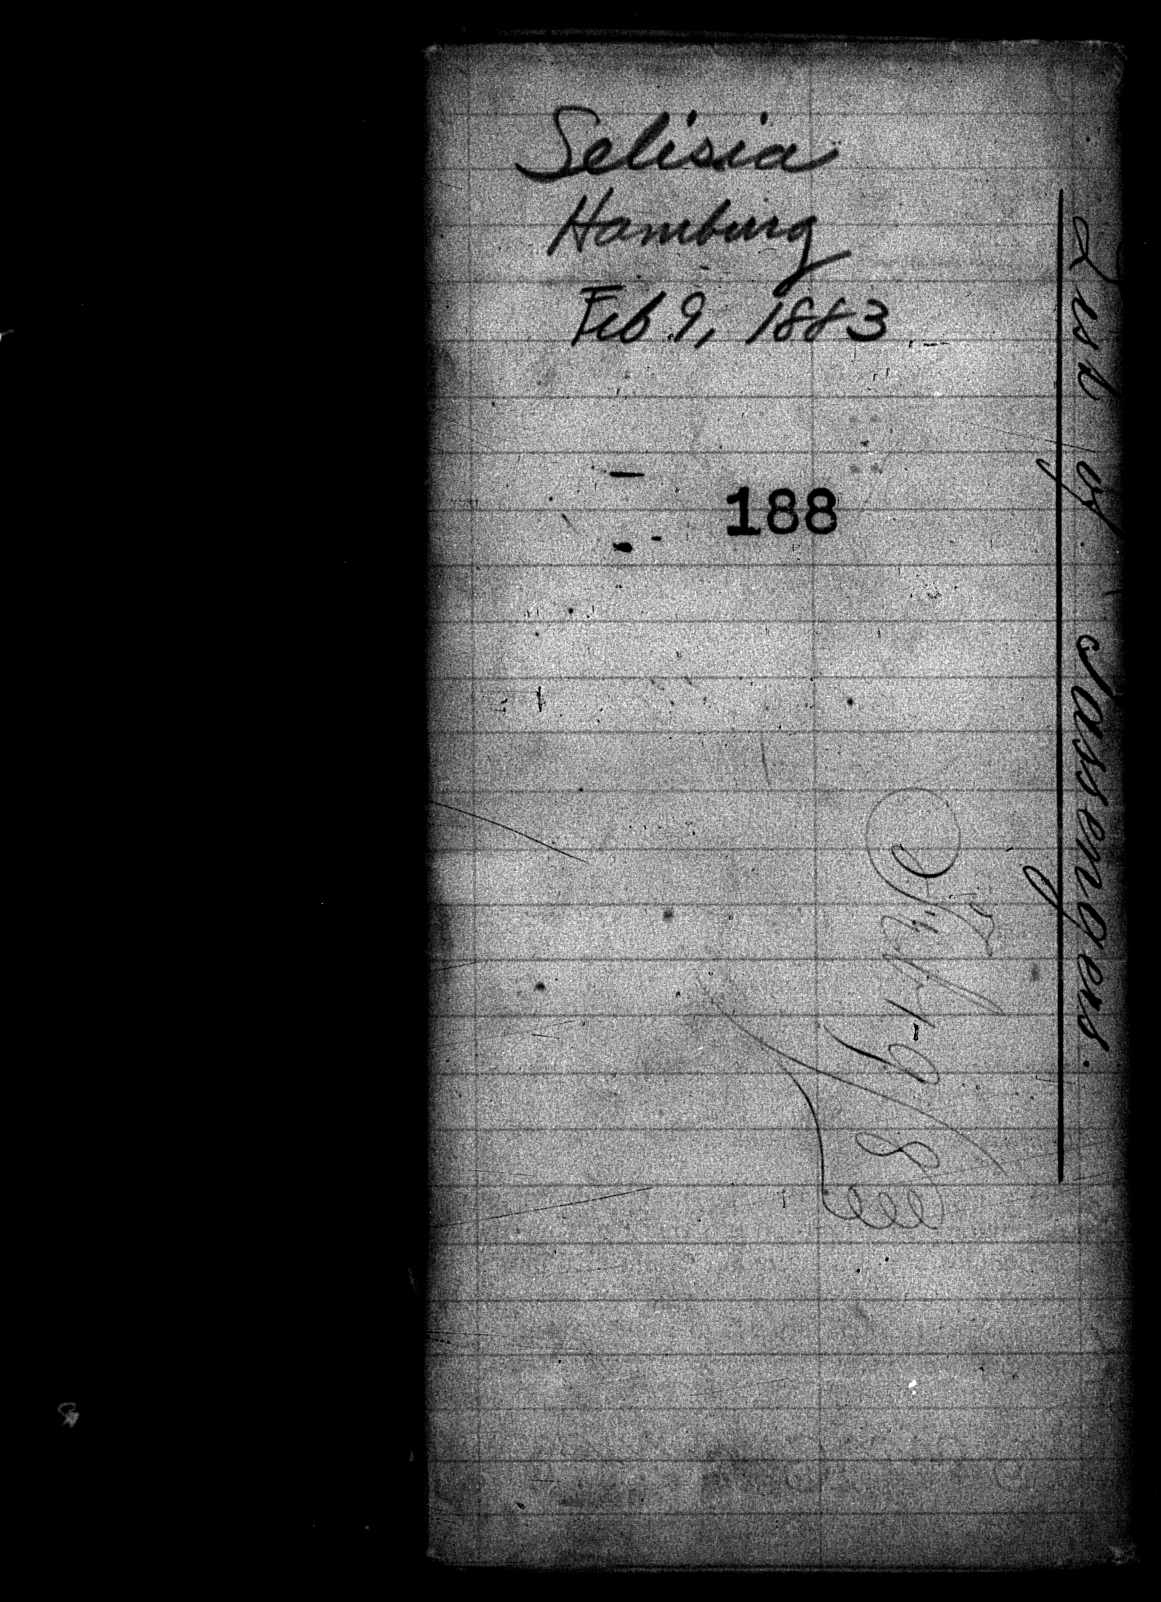 Selisia
Hamburg
Feb 9, 1883
188
List of Passengers.